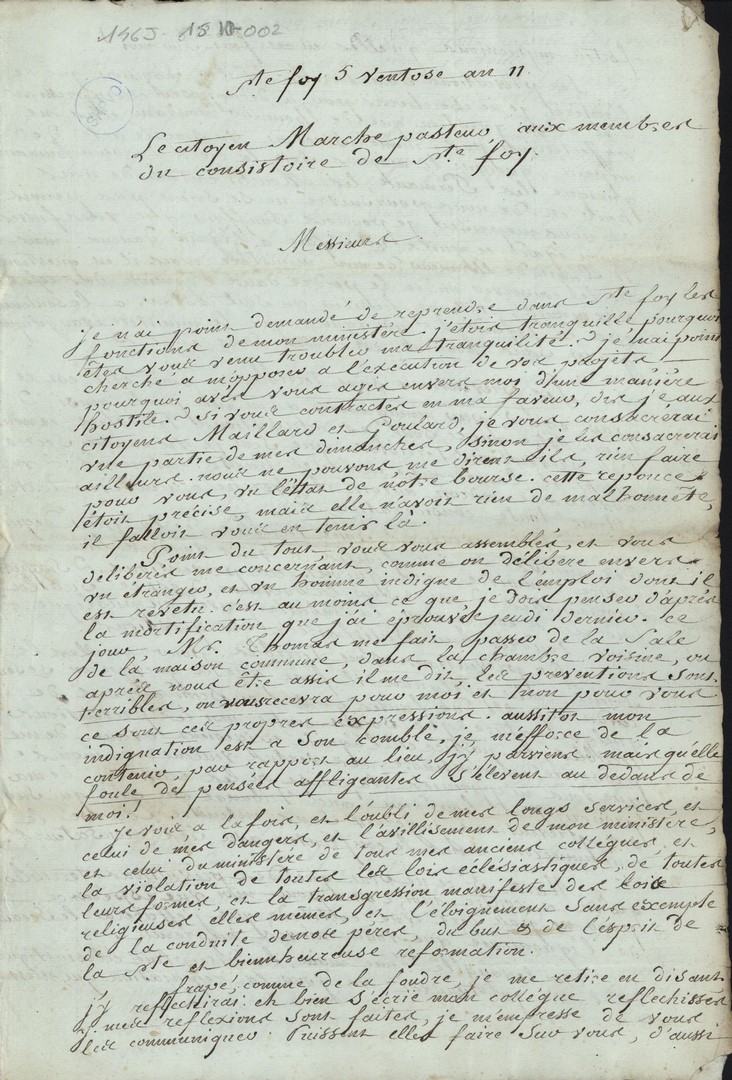 1463 - 15 10-002
Ste foy 5 ventose an 11
Le citoyen Marche pasteur aux membres
du consistoire de Ste foy.
Messieurs
Je n'ai point demandé de reprendre dans Ste foy les
fonctions de mon ministère j'étois tranquille, pourquoi
êtes vous venu troubler ma tranquilité. je n'ai point
cherché a m'opposer a l'execution de vos projets
pourquoi avés vous agis envers moi d'une manière
hostile. si vous contractés en ma faveur, dis je aux
citoyens Maillard et Poulard, je vous consacrérai
une partie de mes dimanches, sinon je les consacrerai
ailleurs. nous ne pouvons, me dirent ils, rien faire
pour vous, vu l'état de nôtre bourse. cette reponce
étoit précise, mais elle n'avoit rien de malhonnête,
il falloit vous en tenir la.
Point du tout, vous vous assemblés, et vous
deliberés me concernant, comme on délibere envers
un étranger, et un homme indigne de l'emploi dont il
est revetu. c'est au moins ce que je dois penser d'après
la mortification que j'ai éprouvée jeudi dernier. ce
jour, Mr. Thomas me fait passer de la Sale
de la maison commune, dans la chambre voisine, ou
après nous être assis il me dit, les preventions sont
terribles, on vous recevra pour moi et non pour vous
ce sont ces propres expressions. aussitot mon
indignation est a son comble, je m'efforce de la
contenir, par rapport au lieu, j'y parviens. mais qu'elle
foule de pensées affligeantes s'élevent au dedans de
moi!
Je vois a la fois, et l'oubli de mes longs services, et
celui de mes dangers, et l'avillisement de mon ministère,
et celui du ministère de tous mes anciens collégues, et
la violation de toutes les lois eclésiastiques, de toutes
leurs formes, et la transgression manifeste des lois
religieuses elles mêmes, et l'éloignement sans exemple
de la conduite de nos pères, du but & de l'esprit de
la Ste et bienheureuse reformation.
frapé, comme de la foudre, je me retire en disant
j'y reflechirai. et bien s'écrie mon collégue reflechissés
y. mes reflexions sont faites, je m'empresse de vous
les communiquer. Puissent elles faire sur vous, d'aussi